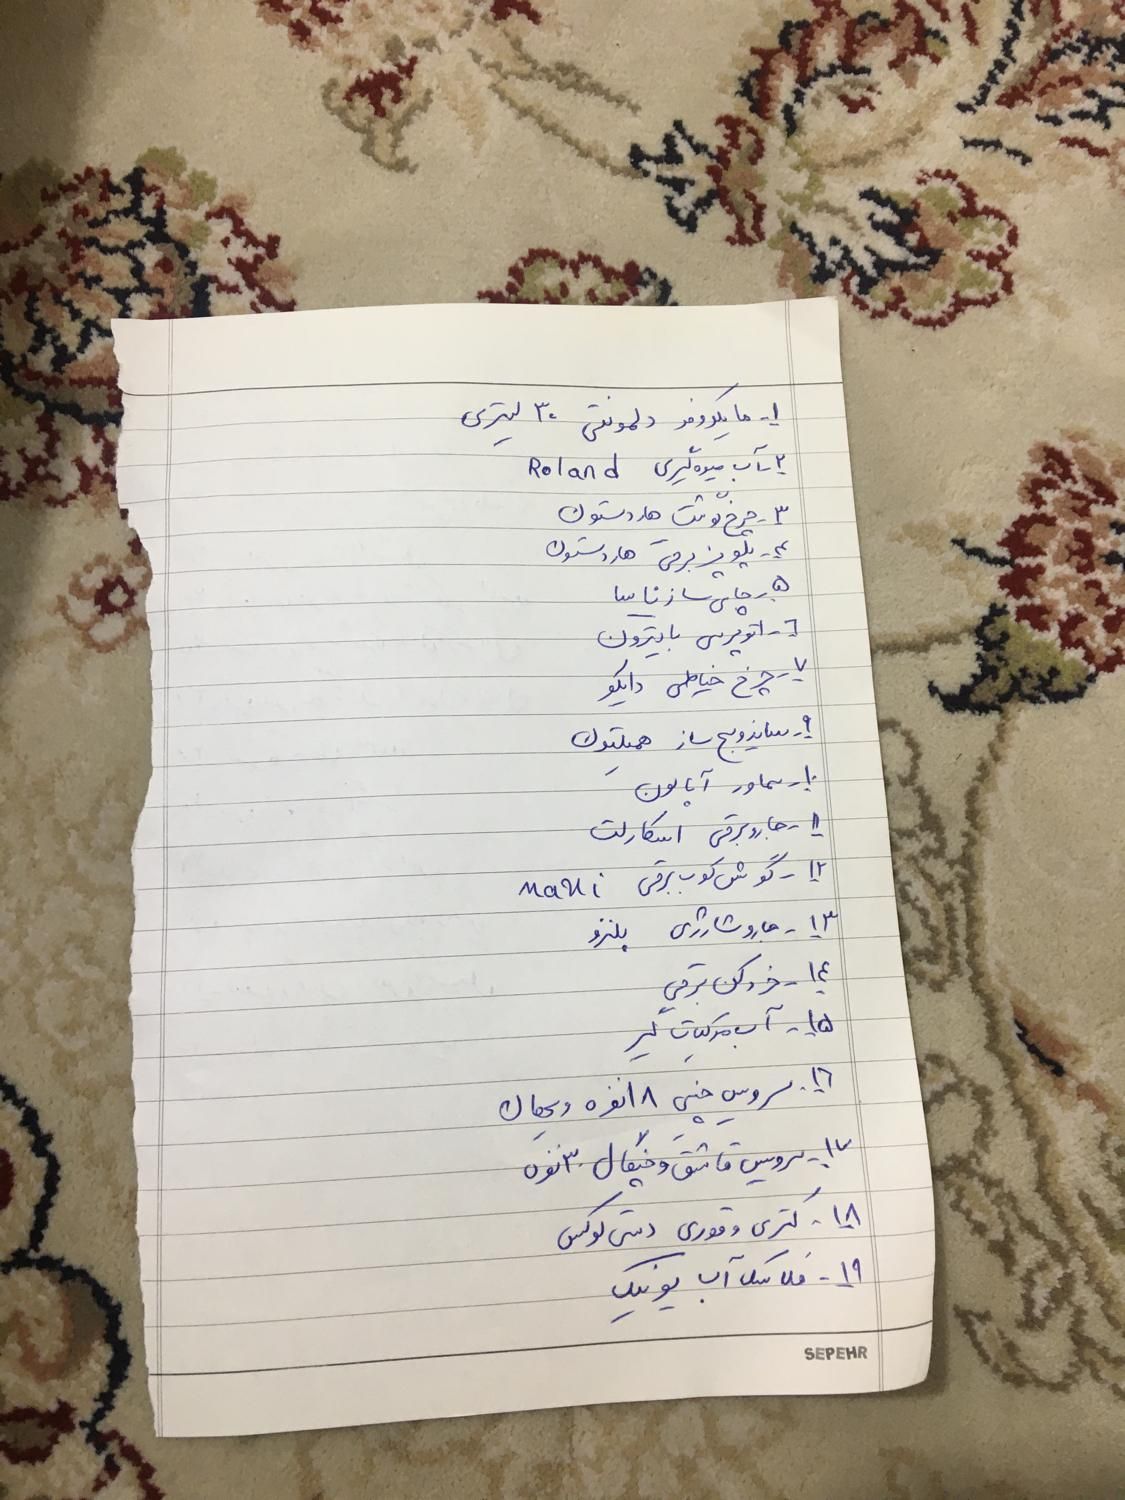 ۱- مایکروفر دلمونتی ۳۰ لیتری
۲- آب میوه گیری Roland
۳- چرخ گوشت هاردستون
۴- پلوپز برقی هاردستون
۵- چای ساز ناسا
۶- اتو پرسی بایترون
۷- چرخ خیاطی دایکو
۹- ساندویچ ساز همیلتون
۱۰- سماور آبابون
۱۱- جاروبرقی اسکارلت
۱۲- گوشت کوب برقی
۱۳- جارو شارژی پلنزو
۱۴- خردکن برقی
۱۵- آب مرکبات گیر
۱۶- سرویس چینی ۱۸ نفره
۱۷- سرویس قاشق و چنگال ۳۰ نفره
۱۸- کتری و قوری دسی لوکس
۱۹- فلاسک آب یونیک
SEPEHR